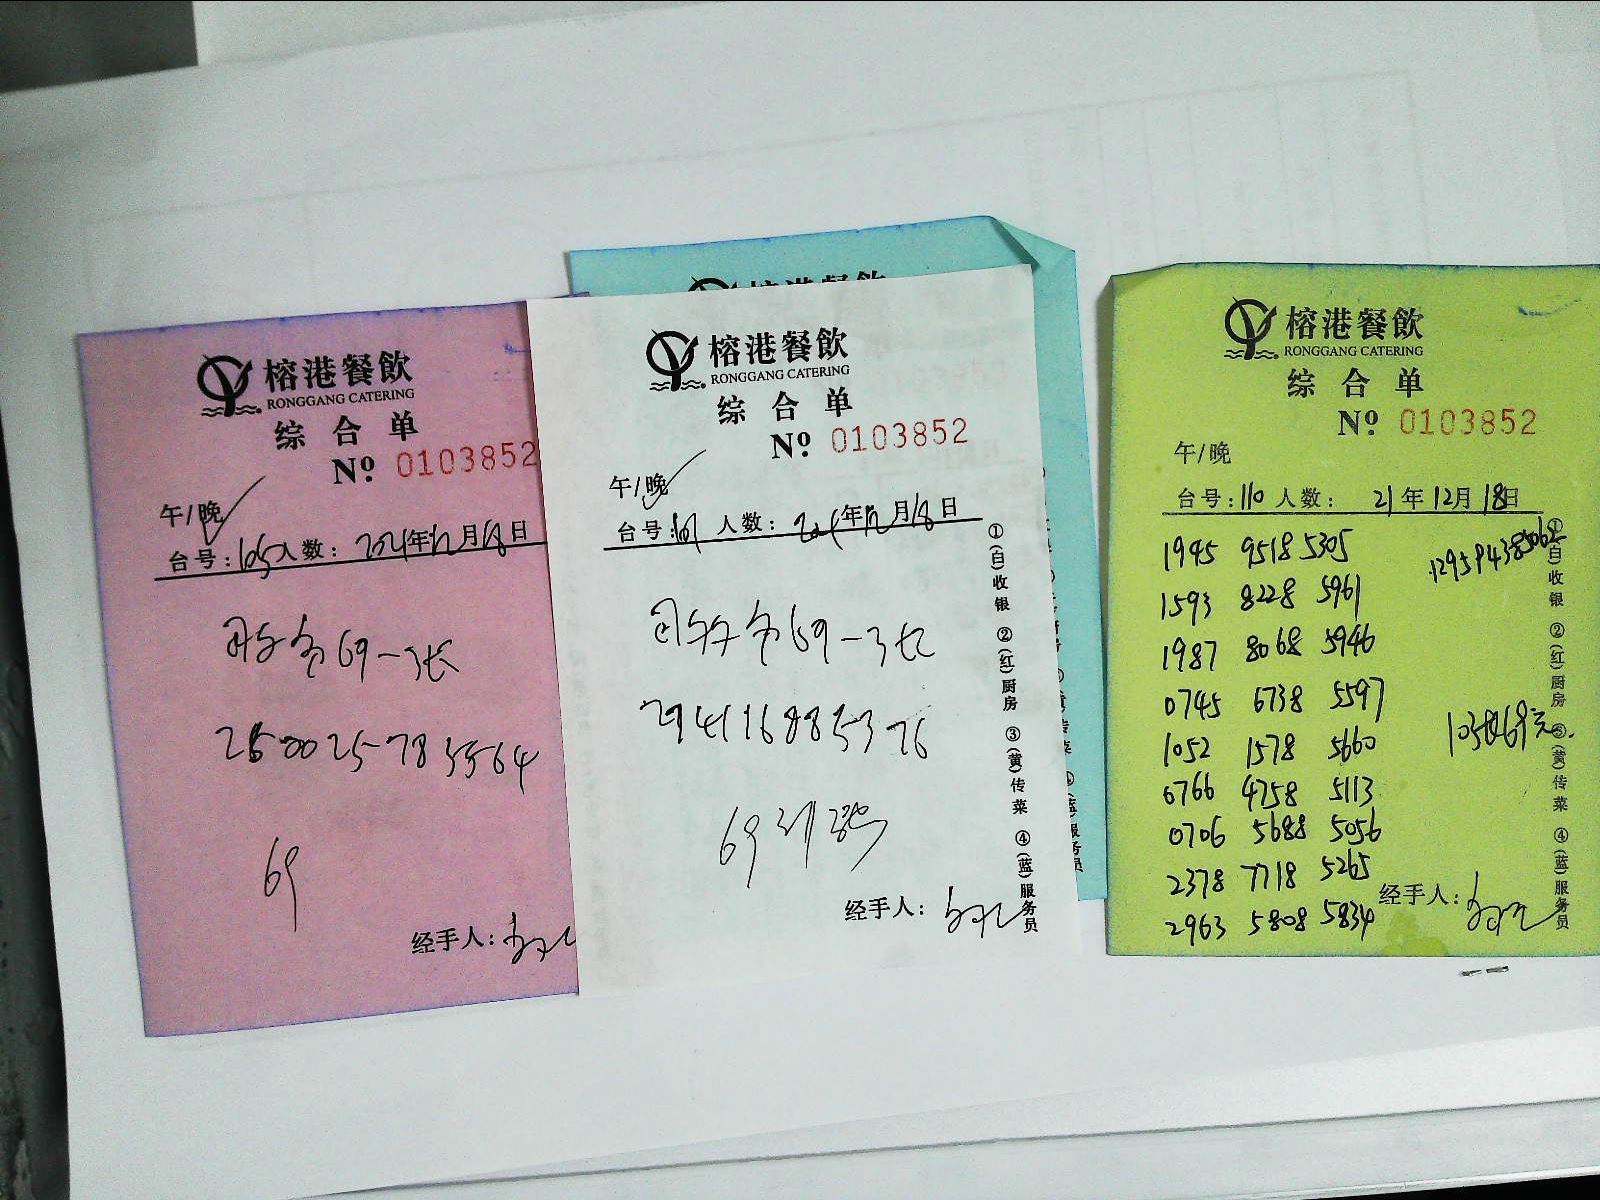 榕港餐飲
RONGGANG CATERING
综合单
Nº 0103852
午/晚
台号：105 人数： 2021年12月18日
69一3张
250025785564
69
经手人：
榕港餐飲
榕港餐飲
RONGGANG CATERING
综合单
Nº 0103852
午/晚
台号： 人数： 年12月18日
69一3张
294116885376
69
经手人：
①(白)收银 ②(红)厨房 ③(黄)传菜 ④(蓝)服务员
榕港餐飲
RONGGANG CATERING
综合单
Nº 0103852
午/晚
台号：110 人数： 21年12月18日
1945 9518 5305
1593 8228 5961
1987 8068 5946
0745 6738 5597
1052 1578 5660
0766 4758 5113
0706 5688 5056
2378 7718 5265
2963 5808 5834
129594385062
经手人：
①(白)收银 ②(红)厨房 ③(黄)传菜 ④(蓝)服务员